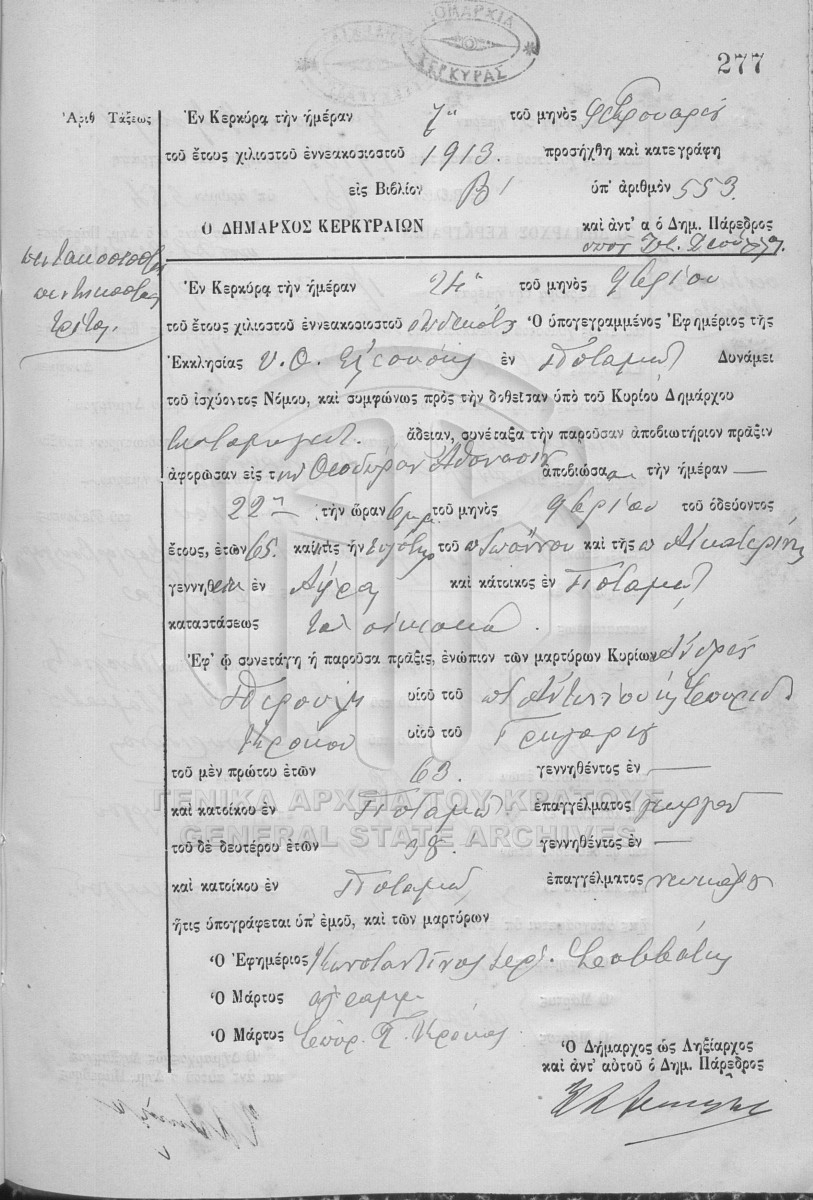 ΔΗΜΑΡΧΙΑ
ΚΕΡΚΥΡΑΣ
277
Ἀριθ Τάξεως
Ἐν Κερκύρα τὴν ἡμέραν 7η τοῦ μηνὸς Φεβρουαρίου
τοῦ ἔτους χιλιοστοῦ ἐννεακοσιοστοῦ 1913. προσήχθη καὶ κατεγράφη
εἰς Βιβλίον Β' ὑπ' ἀριθμὸν 553.
Ο ΔΗΜΑΡΧΟΣ ΚΕΡΚΥΡΑΙΩΝ καὶ ἀντ' α ὁ Δημ. Πάρεδρος
πεντακοσιοστὴ
πεντηκοστὴ
τρίτη.
Ἐν Κερκύρα τὴν ἡμέραν 24η τοῦ μηνὸς 9βρίου
τοῦ ἔτους χιλιοστοῦ ἐννεακοσιοστοῦ δωδεκάτου Ὁ ὑπογεγραμμένος Ἐφημέριος τῆς
Ἐκκλησίας Υ. Θ. Ἐλεούσης ἐν Ποταμῷ Δυνάμει
τοῦ ἰσχύοντος Νόμου, καὶ συμφώνως πρὸς τὴν δοθεῖσαν ὑπὸ τοῦ Κυρίου Δημάρχου
ἄδειαν, συνέταξα τὴν παροῦσαν ἀποβιωτήριον πρᾶξιν
ἀφορῶσαν εἰς τὴν Θεοδώραν Ἀθανασίου ἀποβιώσασαν τὴν ἡμέραν —
22αν τὴν ὥραν 6 μ.μ. τοῦ μηνὸς 9βρίου τοῦ ὁδεύοντος
ἔτους, ἐτῶν 65. καὶ τις ἦν θυγάτηρ τοῦ π Ἰωάννου καὶ τῆς π Αἰκατερίνης
γεννηθεῖσα ἐν Αφρα καὶ κάτοικος ἐν Ποταμῷ
καταστάσεως τὰ οἰκιακά.
Ἐφ' ᾧ συνετάγη ἡ παροῦσα πρᾶξις, ἐνώπιον τῶν μαρτύρων Κυρίων Ἀνδρέου
υἱοῦ τοῦ π Ἀντωνίου κ Σπυρίδ
Κρόκου υἱοῦ τοῦ Γρηγορίου
τοῦ μὲν πρώτου ἐτῶν 63. γεννηθέντος ἐν —
καὶ κατοίκου ἐν Ποταμῷ ἐπαγγέλματος γεωργοῦ
τοῦ δὲ δευτέρου ἐτῶν 38. γεννηθέντος ἐν —
καὶ κατοίκου ἐν Ποταμῷ, ἐπαγγέλματος
ἥτις ὑπογράφεται ὑπ' ἐμοῦ, καὶ τῶν μαρτύρων
Ὁ Ἐφημέριος Κωνσταντῖνος Ἱερ.
Ὁ Μάρτυς ἀγραμμ
Ὁ Μάρτυς Σπυρ. Κρόκος
Ὁ Δήμαρχος ὡς Ληξίαρχος
καὶ ἀντ' αὐτοῦ ὁ Δημ. Πάρεδρος
ΓΕΝΙΚΑ ΑΡΧΕΙΑ ΤΟΥ ΚΡΑΤΟΥΣ
GENERAL STATE ARCHIVES